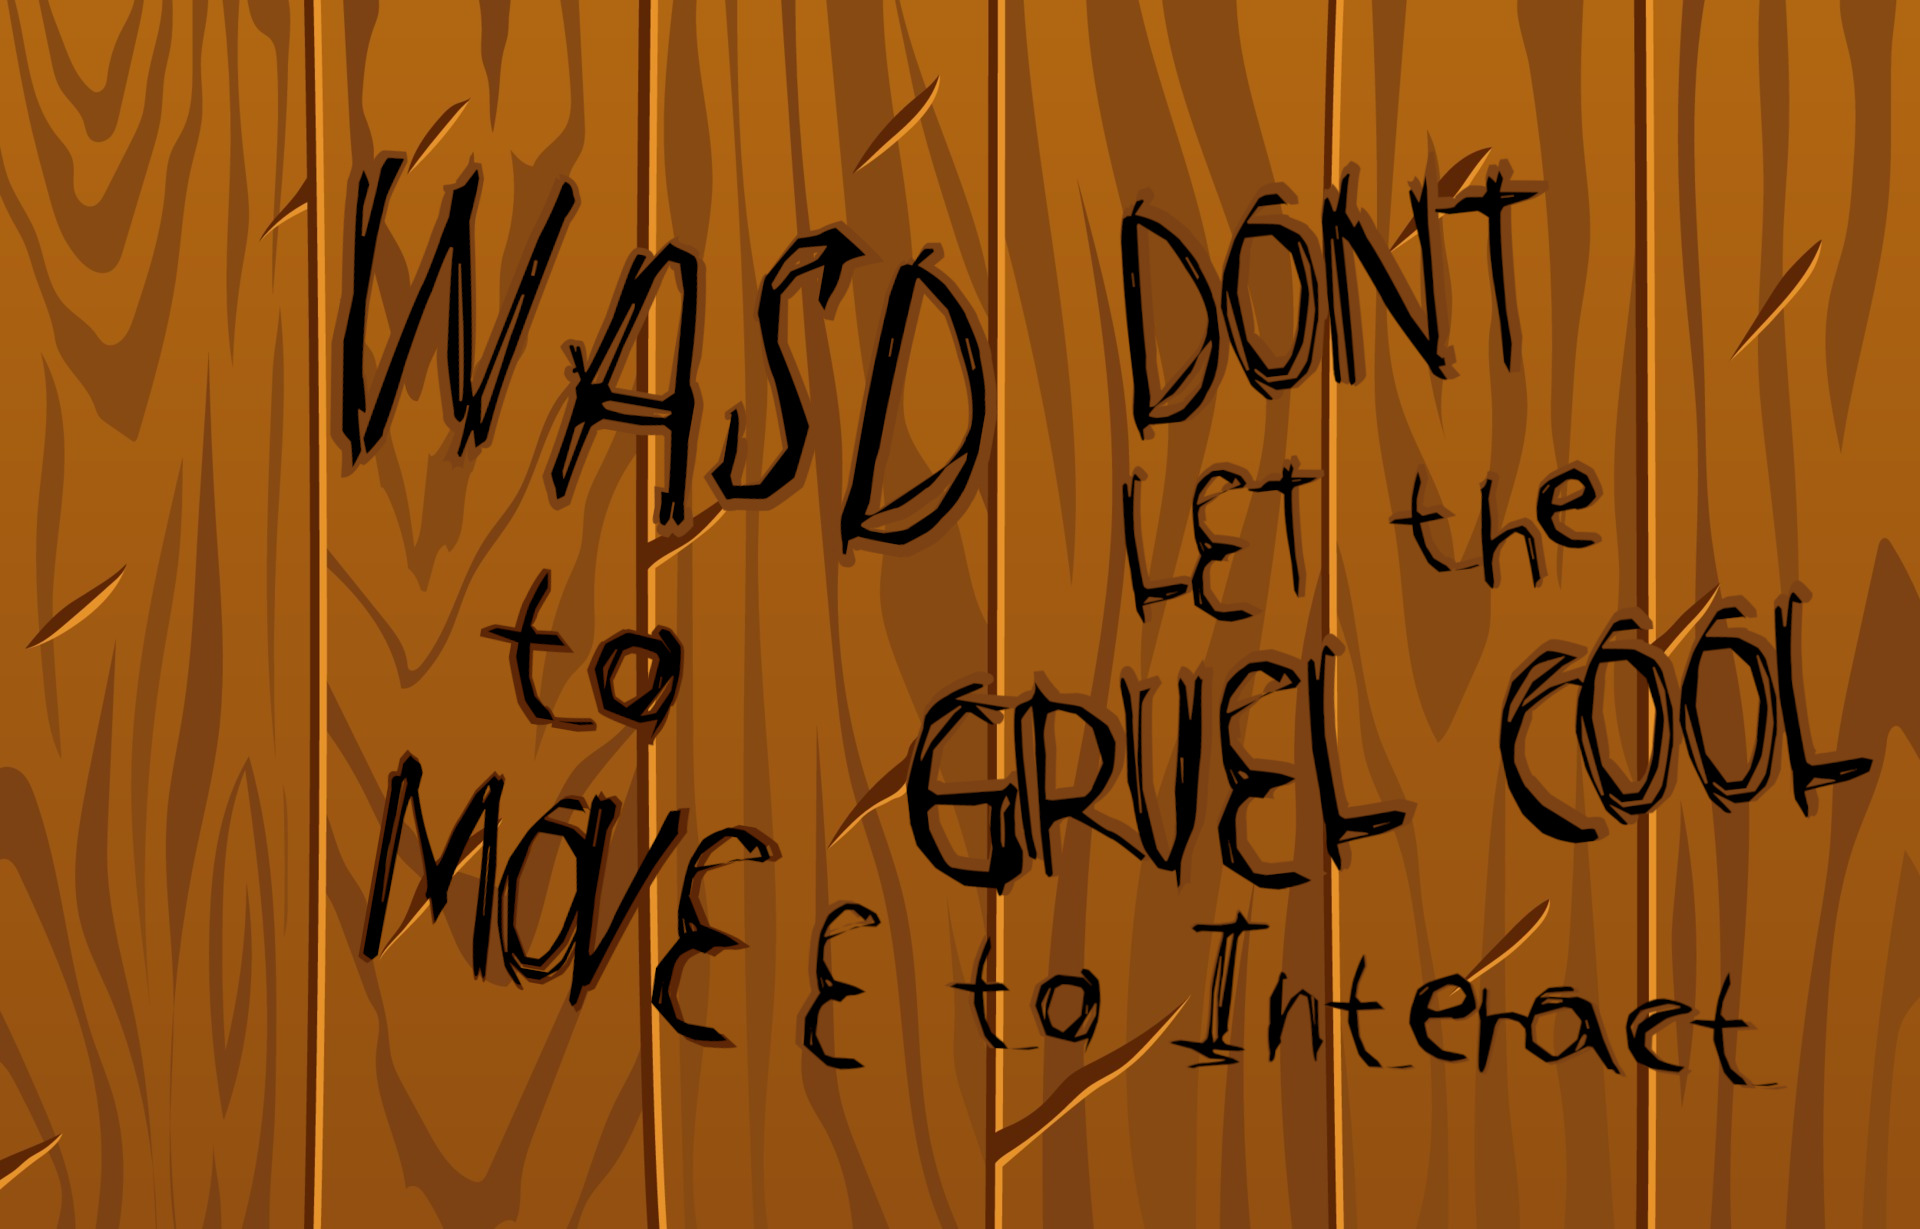 WASD
to
MOVE
DONT
LET the
GRUEL COOL
E to Interact